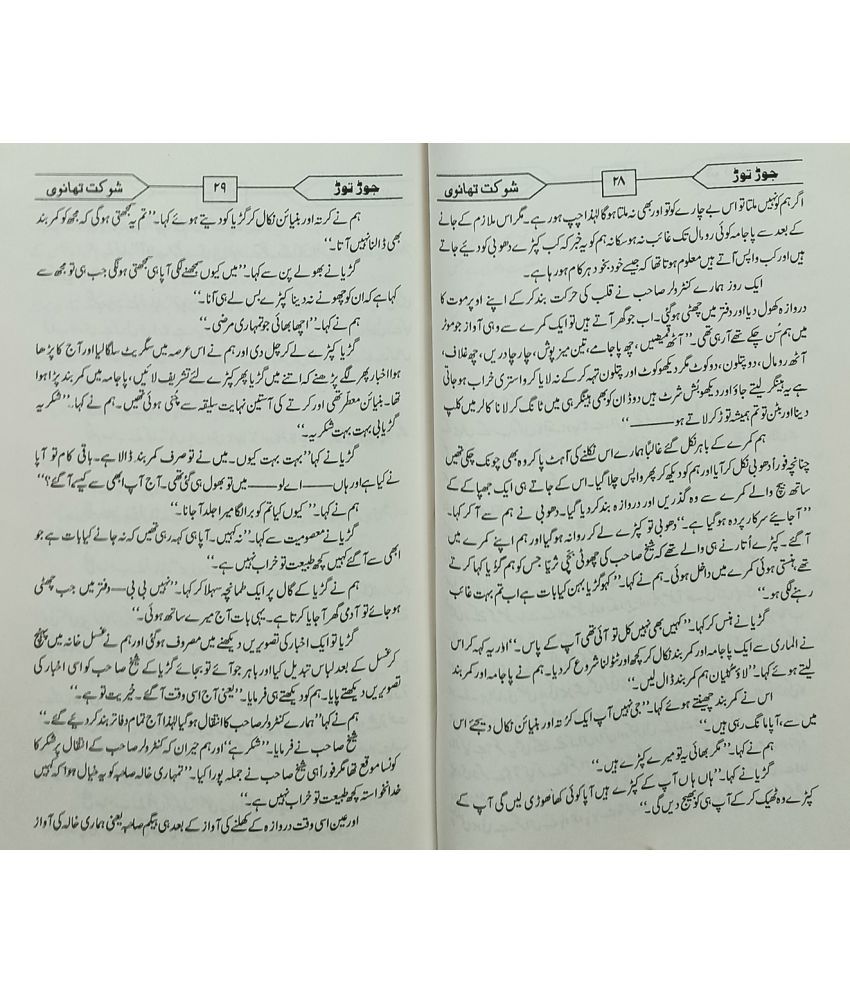 جوڑ توڑ ۲۸ شوکت تھانوی
اگر ہم کو نہیں ملتا تو اس بے چارے کو تو اور بھی نہ ملتا ہوگا لہٰذا چپ ہور ہے۔ مگر اس ملازم کے جانے
کے بعد سے پاجامہ کوئی رومال تک غائب نہ ہو سکا نہ ہم کو یہ خبر کہ کب کپڑے دھوبی کو دیئے جاتے
ہیں اور کب واپس آتے ہیں معلوم ہوتا تھا کہ جیسے خود بخود ہر کام ہو رہا ہے۔
ایک روز ہمارے کنٹرولر صاحب نے قلب کی حرکت بند کر کے اپنے اوپر موت کا
دروازہ کھول دیا اور دفتر میں چھٹی ہوگئی۔ اب جو گھر آتے ہیں تو ایک کمرے سے وہی آواز جو موٹر
میں ہم سُن چکے تھے آ رہی تھی۔ ”آٹھ قمیضیں، چھ پاجامے، تین میز پوش، چار چادریں، چھ غلاف،
آٹھ رومال، دو پتلون، دو کوٹ مگر دیکھو کوٹ اور پتلون تہہ کر کے نہ لایا کرو استری خراب ہو جاتی
ہے یہ ہینگر لیتے جاؤ اور دیکھو بش شرٹ ہیں دو ڈان کو بھی ہینگر ہی میں ٹانگ کر لانا کالر میں کلپ
دینا اور بٹن تو تم ہمیشہ توڑ کر لاتے ہو ———“
ہم کمرے کے باہر نکل گئے غالباً ہمارے اس نکلنے کی آہٹ پا کر وہ بھی چونک چکی تھیں
چنانچہ فوراً دھوبی نکل کر آیا اور ہم کو دیکھ کر پھر واپس چلا گیا۔ اس کے جاتے ہی ایک جھپاکے کے
ساتھ بیچ والے کمرے سے وہ گذریں اور دروازہ بند کر دیا گیا۔ دھوبی نے ہم سے آ کر کہا۔
”آجائیے سرکار پردہ ہو گیا ہے۔“ دھوبی تو کپڑے لے کر روانہ ہو گیا اور ہم اپنے کمرے میں
آگئے۔ کپڑے اُتارنے ہی والے تھے کہ شیخ صاحب کی چھوٹی بچی ثریّا جس کو ہم گڑیا کہا کرتے
تھے، ہنستی ہوئی کمرے میں داخل ہوئی۔ ہم نے کہا۔ ”کہو گڑیا بہن کیا بات ہے اب تم بہت غائب
رہنے لگی ہو۔“
گڑیا نے ہنس کر کہا۔ ”کہیں بھی نہیں کل تو آئی تھی آپ کے پاس۔“ اور یہ کہہ کر اس
نے الماری سے ایک پاجامہ اور کمر بند نکال کر کچھ اور ٹٹولنا شروع کر دیا۔ ہم نے پاجامہ اور کمر بند
لیتے ہوئے کہا۔ ”لاؤ ہم کمر بند ڈال لیں۔“
اس نے کمر بند چھینتے ہوئے کہا۔ ”جی نہیں آپ ایک کرتہ اور بنیائن نکال دیجئے اس
میں سے، آپا مانگ رہی ہیں۔“
ہم نے کہا۔ ”مگر بھائی یہ تو میرے کپڑے ہیں۔“
گڑیا نے کہا۔ ”ہاں ہاں آپ کے کپڑے ہیں آپا کوئی کھا تھوڑی لیں گی آپ کے
کپڑے وہ ٹھیک کر کے آپ ہی کو بھیج دیں گی۔“
جوڑ توڑ ۲۹ شوکت تھانوی
ہم نے کرتہ اور بنیائن نکال کر گڑیا کو دیتے ہوئے کہا۔ ”تم یہ سمجھتی ہو گی کہ مجھ کو کمر بند
بھی ڈالنا نہیں آتا۔“
گڑیا نے بھولے پن سے کہا۔ ”میں کیوں سمجھنے لگی آپا ہی سمجھتی ہونگی جب ہی تو مجھ سے
کہا ہے کہ ان کو چھونے نہ دینا کپڑے بس لے ہی آنا۔“
ہم نے کہا۔ ”اچھا بھائی جو تمہاری مرضی۔“
گڑیا کپڑے لے کر چل دی اور ہم نے اس عرصہ میں سگریٹ سلگا لیا اور آج کا پڑھا
ہوا اخبار پھر لگے پڑھنے کہ اتنے میں گڑیا پھر کپڑے لئے تشریف لائیں، پاجامہ میں کمر بند پڑا ہوا
تھا۔ بنیائن معطر تھی اور کرتے کی آستین نہایت سلیقہ سے چُنی ہوئی تھیں۔ ہم نے کہا۔ ”شکریہ
گڑیا بی بہت بہت شکریہ۔“
گڑیا نے کہا ”بہت بہت کیوں۔ میں نے تو صرف کمر بند ڈالا ہے۔ باقی کام تو آپا
نے کیا ہے اور ہاں —— اے لو —— میں تو بھول ہی گئی تھی۔ آج آپ ابھی سے کیسے آ گئے؟“
ہم نے کہا۔ ”کیوں کیا تم کو برا لگا میرا جلد آ جانا۔“
گڑیا نے معصومیت سے کہا۔ ”نہ کہیں۔ آپا ہی کہہ رہی تھیں کہ نہ جانے کیا بات ہے جو
ابھی سے آ گئے کہیں کچھ طبیعت تو خراب نہیں ہے۔“
ہم نے گڑیا کے گال پر ایک طمانچہ سہلا کر کہا۔ ”نہیں بی بی — دفتر میں جب چھٹی
ہو جائے تو آدمی گھر آ جایا کرتا ہے۔ یہی بات آج میرے ساتھ ہوئی۔“
گڑیا تو ایک اخبار کی تصویریں دیکھنے میں مصروف ہو گئی اور ہم نے غسل خانہ میں پہنچ
کر غسل کے بعد لباس تبدیل کیا اور باہر جو آئے تو بجائے گڑیا کے شیخ صاحب کو اسی اخبار کی
تصویریں دیکھتے پایا۔ ہم کو دیکھتے ہی فرمایا۔ ”یعنی آج اسی وقت آ گئے۔ خیریت تو ہے۔“
ہم نے کہا ”ہمارے کنٹرولر صاحب کا انتقال ہو گیا لہٰذا آج تمام دفاتر بند کر دیئے گئے۔“
شیخ صاحب نے فرمایا۔ ”شکر ہے“ اور ہم حیران کہ کنٹرولر صاحب کے انتقال پر شکر کا
کونسا موقع تھا مگر فوراً ہی شیخ صاحب نے جملہ پورا کیا۔ ”تمہاری خالہ صاحبہ کو یہ خیال ہوا کہ کہیں
خدانخواستہ کچھ طبیعت تو خراب نہیں ہے۔“
اور عین اسی وقت دروازہ کے کھلنے کی آواز کے بعد ہی بیگم صاحبہ یعنی ہماری خالہ کی آواز